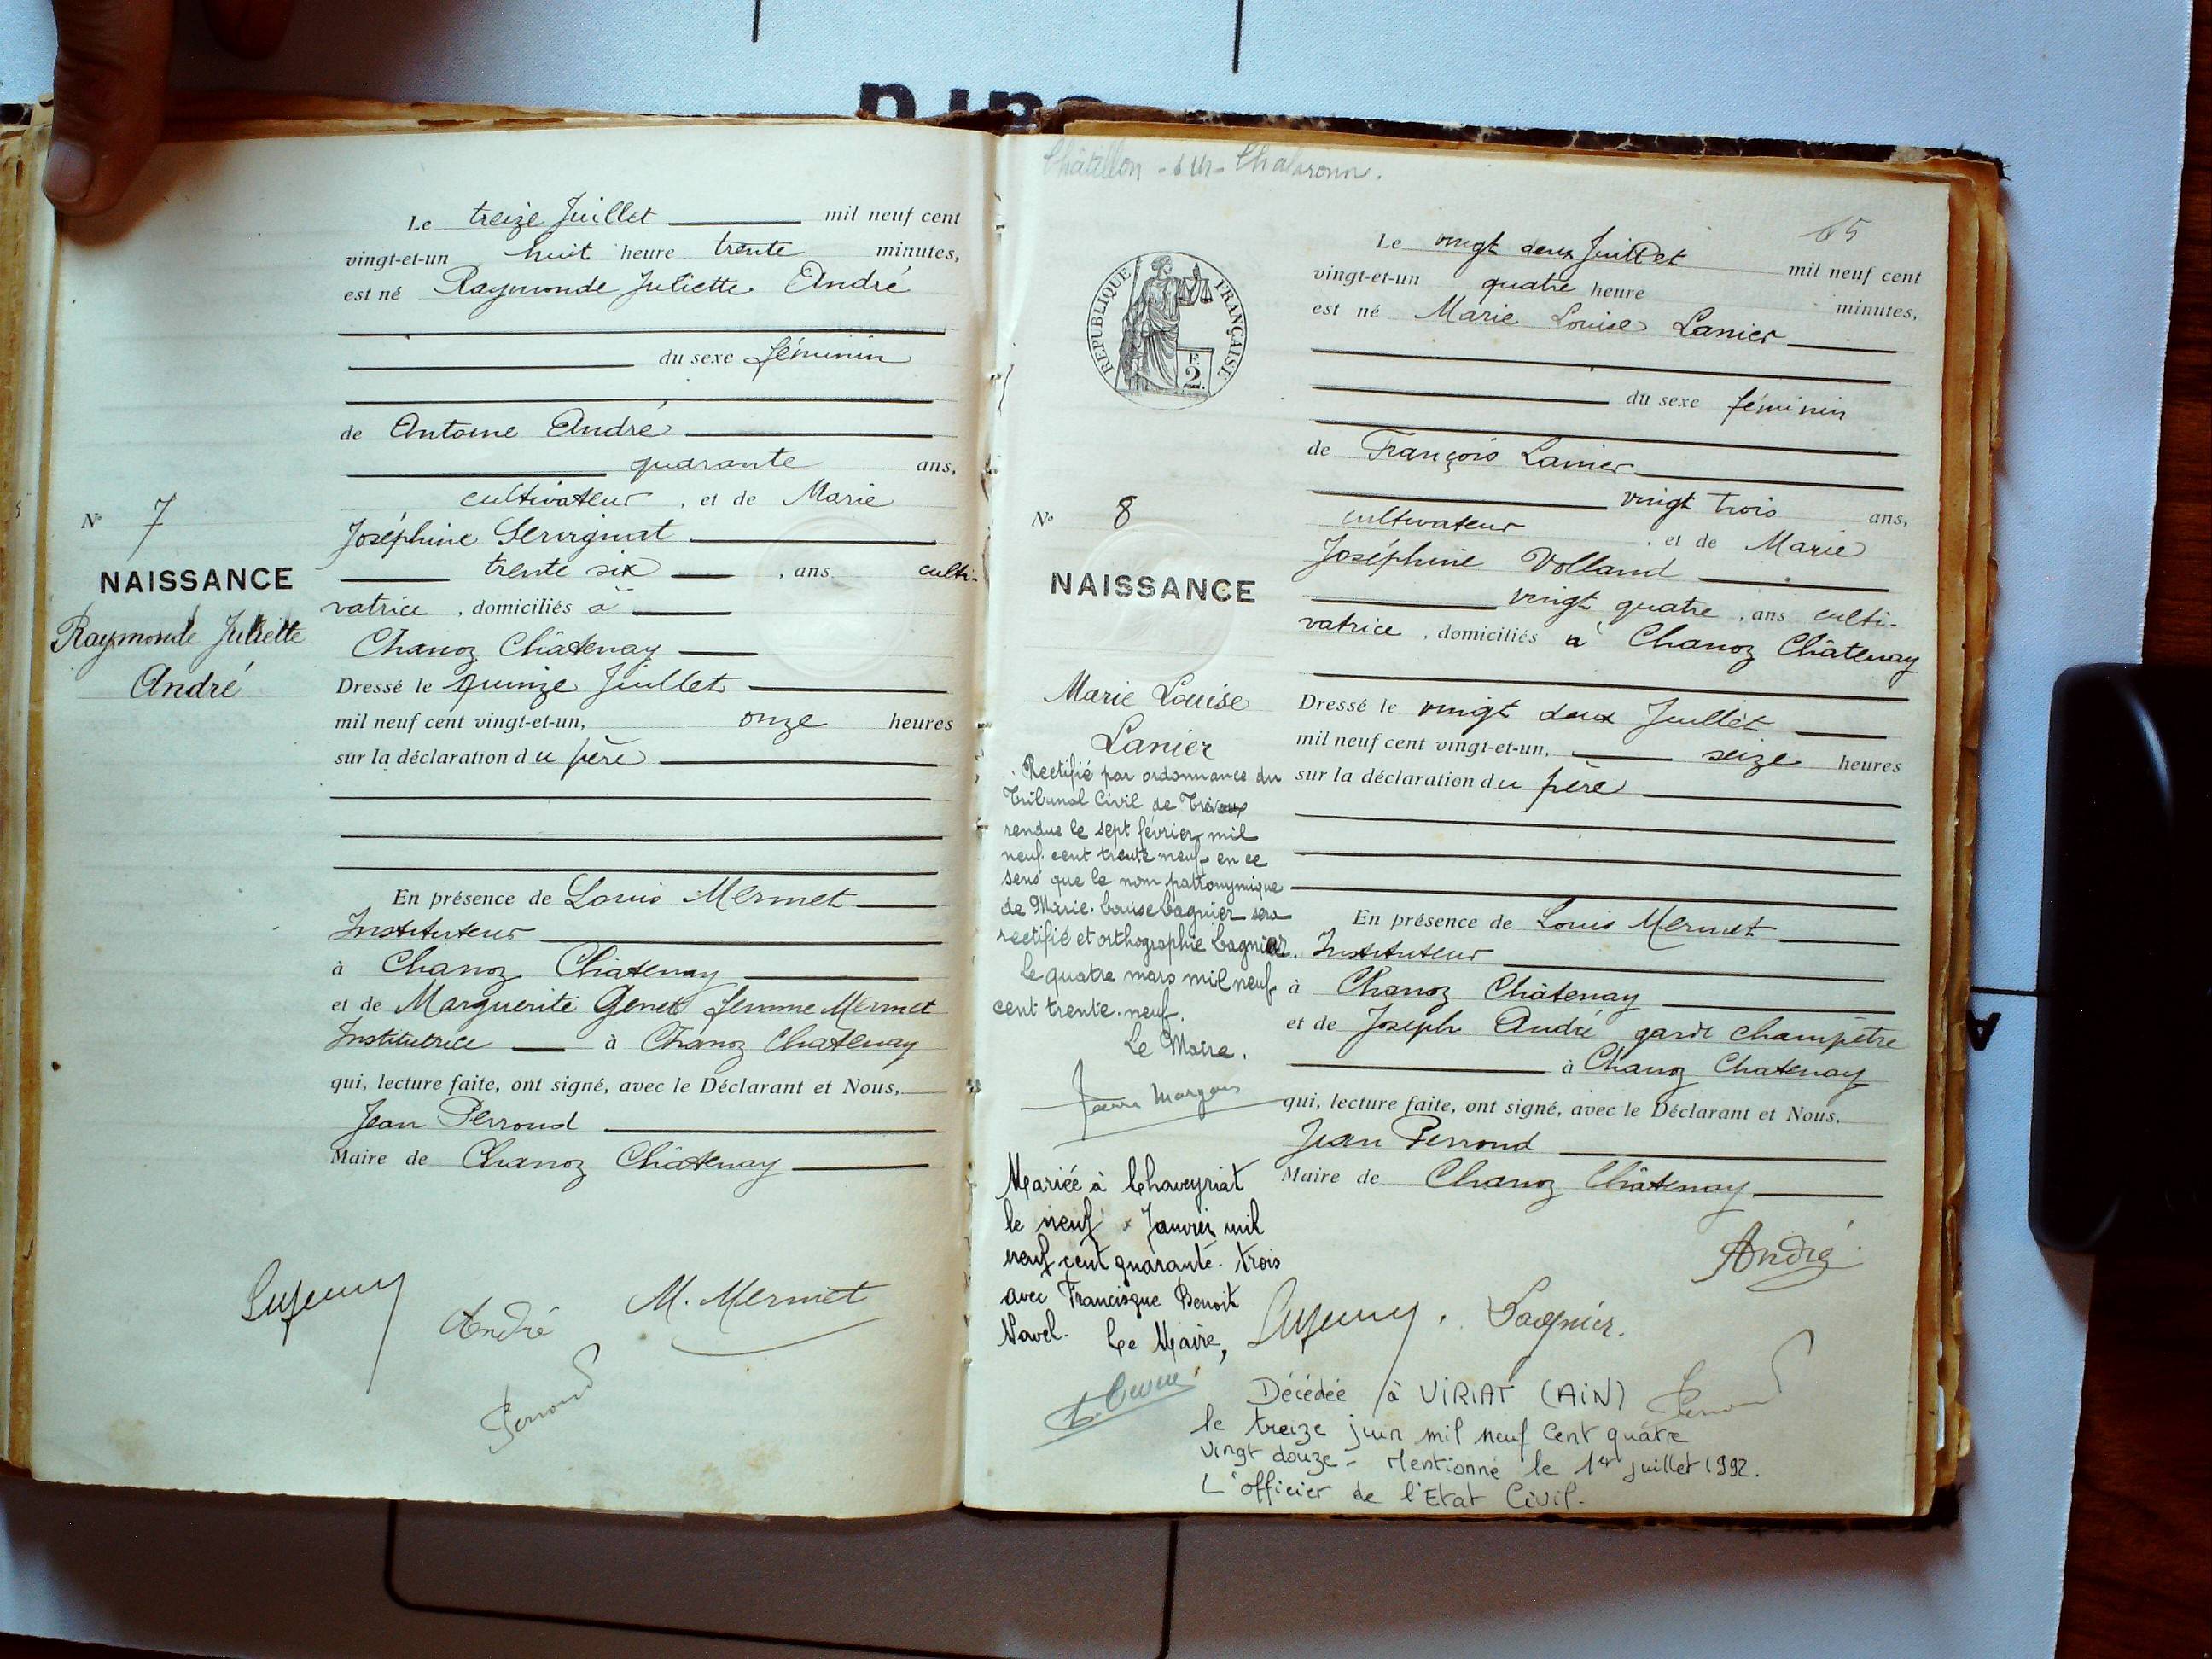 Le treize Juillet mil neuf cent
vingt-et-un huit heure trente minutes,
est né Raymonde Juliette André
du sexe féminin
de Antoine André
quarante ans,
cultivateur, et de Marie
Joséphine
trente six, ans culti-
vatrice, domiciliés à
Chanoz Châtenay
Dressé le quinze Juillet
mil neuf cent vingt-et-un, onze heures
sur la déclaration du père
En présence de Louis Mermet
Instituteur
à Chanoz Châtenay
et de Marguerite Genet femme Mermet
Institutrice à Chanoz Chatenay
qui, lecture faite, ont signé, avec le Déclarant et Nous,
Jean Perroud
Maire de Chanoz Châtenay
N° 7
NAISSANCE
Raymonde Juliette
André
André
M. Mermet
Perroud
Châtillon-sur-Chalaronn.
15
RÉPUBLIQUE FRANÇAISE
F.
2
Le vingt deux Juillet mil neuf cent
vingt-et-un quatre heure minutes,
est né Marie Louise Lanier
du sexe féminin
de François Lanier
vingt trois ans,
cultivateur, et de Marie
Joséphine Volland
vingt quatre, ans culti-
vatrice, domiciliés à Chanoz Châtenay
Dressé le vingt deux Juillet
mil neuf cent vingt-et-un, seize heures
sur la déclaration du père
En présence de Louis Mermet
Instituteur
à Chanoz Châtenay
et de Joseph André garde champêtre
à Chanoz Chatenay
qui, lecture faite, ont signé, avec le Déclarant et Nous,
Jean Perroud
Maire de Chanoz Châtenay
N° 8
NAISSANCE
Marie Louise
Lanier
Rectifié par ordonnance du
Tribunal Civil de Trévoux
rendue le sept février mil
neuf cent trente neuf en ce
sens que le nom patronymique
de Marie-Louise Lagnier sera
rectifié et orthographié Lagnier.
Le quatre mars mil neuf
cent trente-neuf.
Le Maire.
Mariée à Chaveyriat
le neuf Janvier mil
neuf cent quarante-trois
avec Francisque Benoit
Navel. Le Maire,
André
Lagnier.
Perroud
Décédée à VIRIAT (AIN)
le treize juin mil neuf cent quatre
vingt douze - Mentionné le 1er juillet 1992.
L'officier de l'Etat Civil.